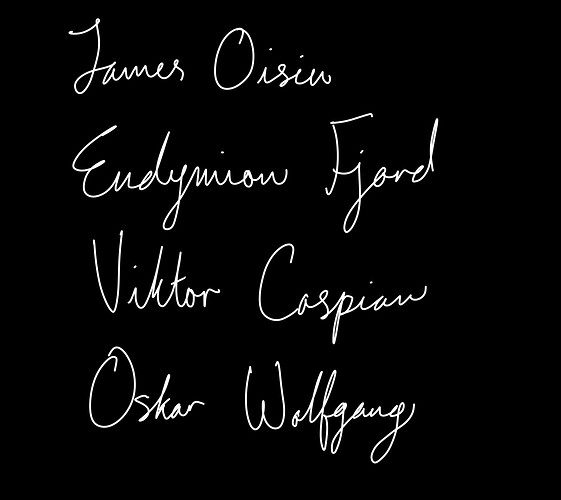 James Oisin
Endymion Fjord
Viktor Caspian
Oskar Wolfgang